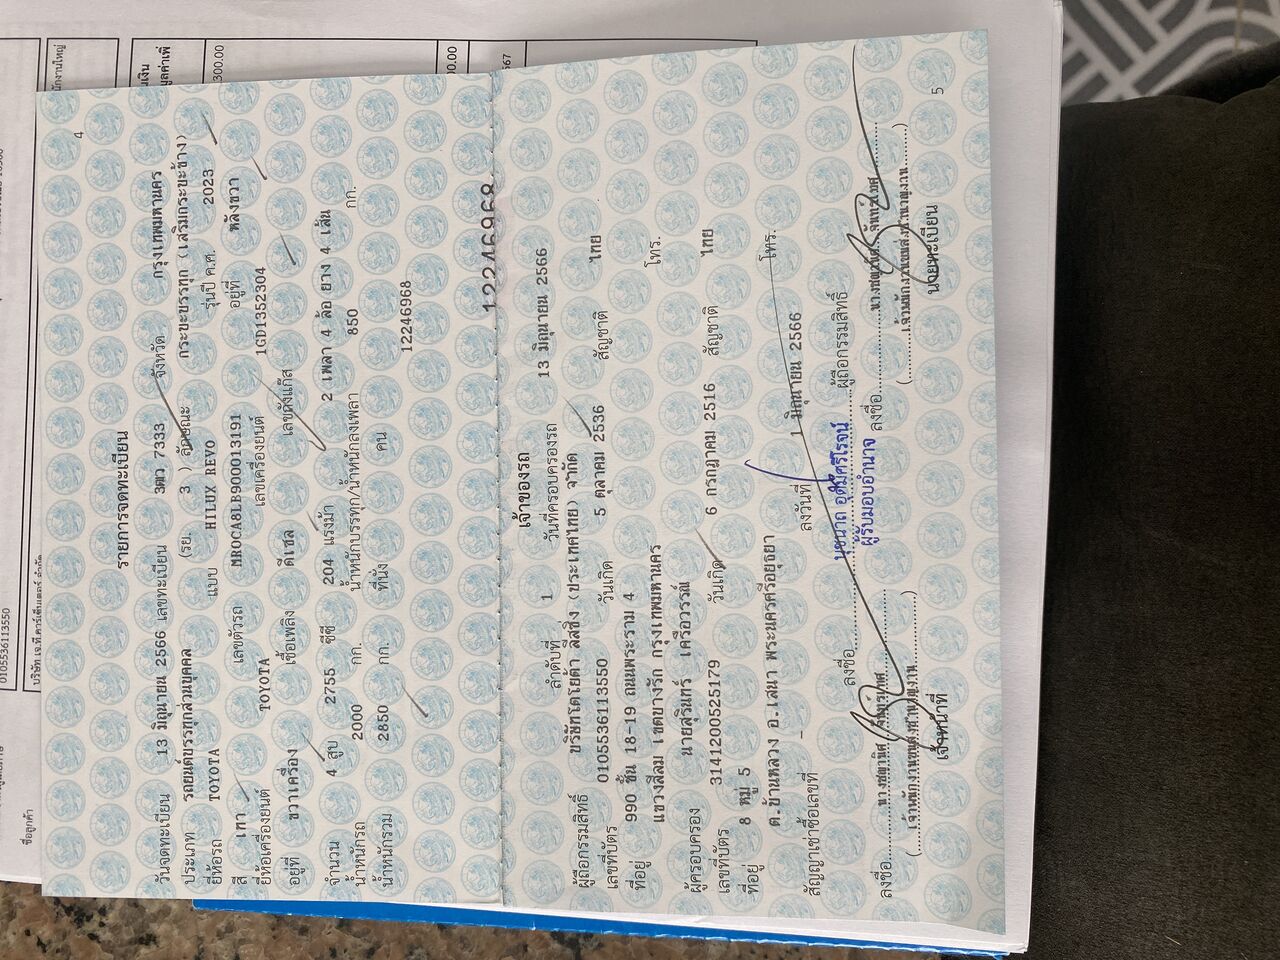 4
รายการจดทะเบียน
วันจดทะเบียน 13 มิถุนายน 2566 เลขทะเบียน 3ฒว 7333 จังหวัด กรุงเทพมหานคร
ประเภท รถยนต์บรรทุกส่วนบุคคล (รย. 3 ) ลักษณะ กระบะบรรทุก (เสริมกระบะข้าง)
ยี่ห้อรถ TOYOTA แบบ HILUX REVO รุ่นปี ค.ศ. 2023
สี เทา เลขตัวรถ MR0CA8LB900013191 อยู่ที่ หลังขวา
ยี่ห้อเครื่องยนต์ TOYOTA เลขเครื่องยนต์ 1GD1352304
อยู่ที่ ขวาเครื่อง เชื้อเพลิง ดีเซล เลขถังแก๊ส
จำนวน 4 สูบ 2755 ซีซี 204 แรงม้า 2 เพลา 4 ล้อ ยาง 4 เส้น
น้ำหนักรถ 2000 กก. น้ำหนักบรรทุก/น้ำหนักลงเพลา 850 กก.
น้ำหนักรวม 2850 กก. ที่นั่ง คน 12246968
12246968
เจ้าของรถ
ลำดับที่ 1 วันที่ครอบครองรถ 13 มิถุนายน 2566
ผู้ถือกรรมสิทธิ์ บริษัทโตโยต้า ลีสซิ่ง (ประเทศไทย) จำกัด
เลขที่บัตร 0105536113550 วันเกิด 5 ตุลาคม 2536 สัญชาติ ไทย
ที่อยู่ 990 ชั้น 18-19 ถนนพระราม 4
แขวงสีลม เขตบางรัก กรุงเทพมหานคร โทร.
ผู้ครอบครอง นายสุรินทร์ เครือวรรณ์
เลขที่บัตร 3141200525179 วันเกิด 6 กรกฎาคม 2516 สัญชาติ ไทย
ที่อยู่ 8 หมู่ 5
ต.บ้านหลวง อ.เสนา พระนครศรีอยุธยา โทร.
สัญญาเช่าซื้อเลขที่ - ลงวันที่ 1 มิถุนายน 2566
ลงชื่อ ผู้ถือกรรมสิทธิ์
ผู้รับมอบอำนาจ
ลงชื่อ ลงชื่อ
(เจ้าพนักงานขนส่งชำนาญงาน) (เจ้าพนักงานขนส่งชำนาญงาน)
เจ้าหน้าที่ นายทะเบียน
5
0105536113550
ชื่อลูกค้า
300.00
00.00